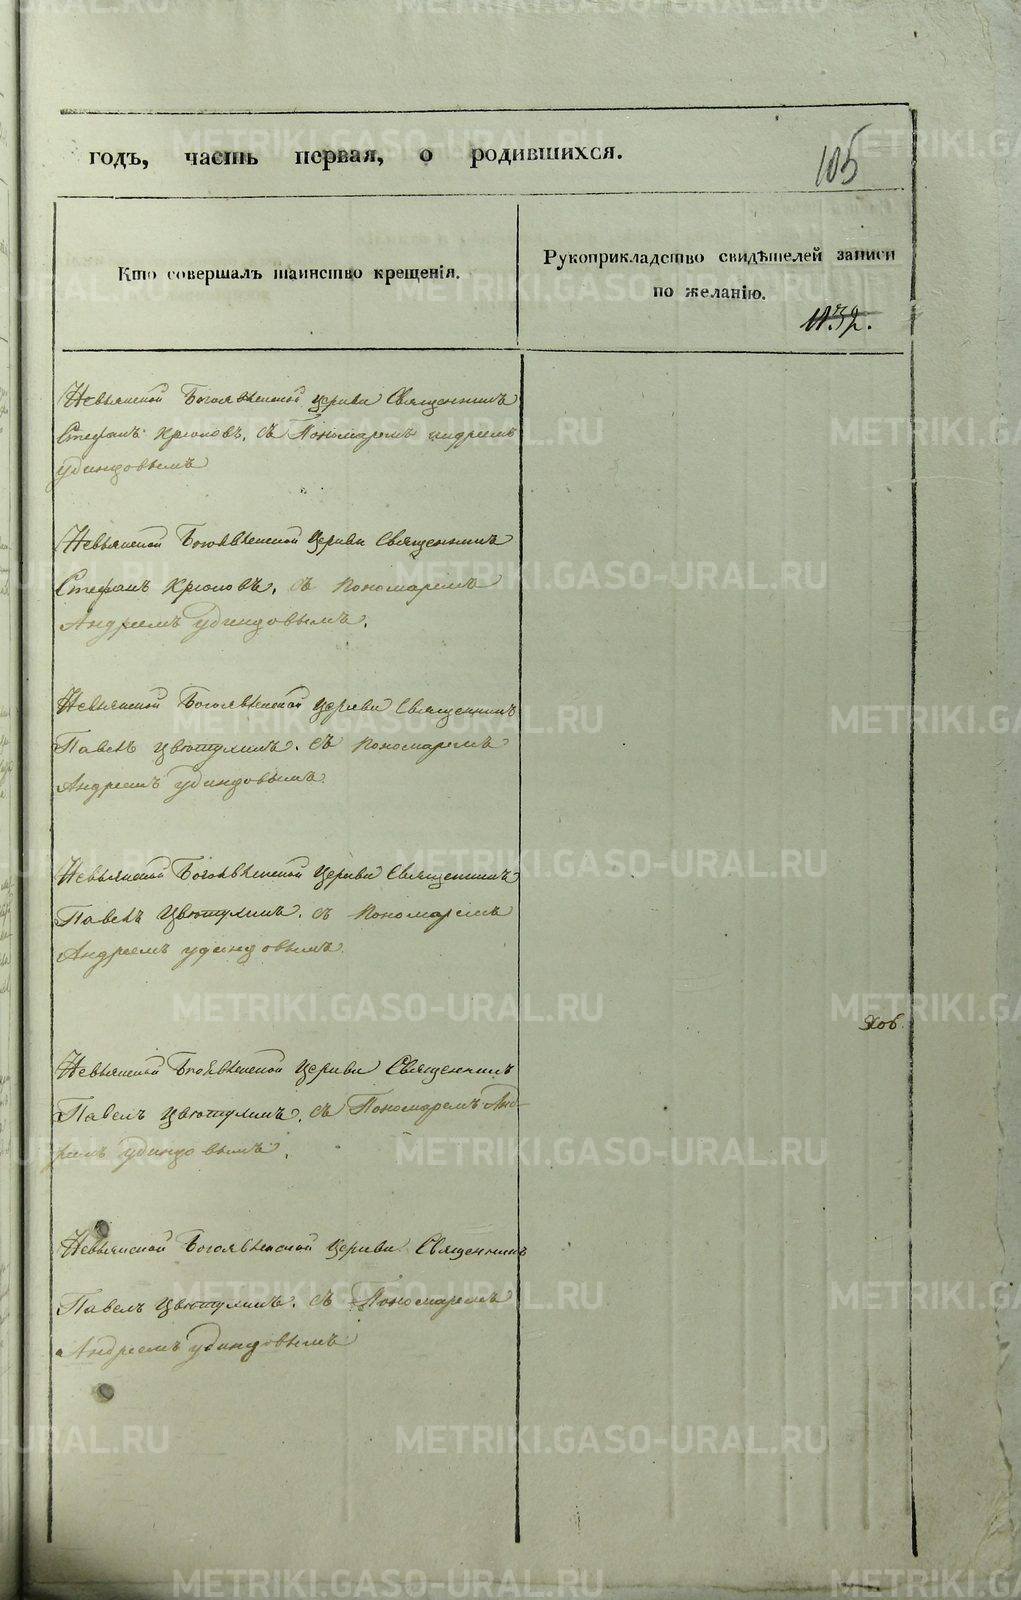 годъ, часть первая, о родившихся.
105
Кто совершалъ таинство крещенія.
Рукоприкладство свидѣтелей записи
по желанію.
Невьянской Богоявленской Церкви Священникъ
Стефанъ Крюковъ, съ Пономаремъ Андреемъ
Удинцовымъ
Невьянской Богоявленской Церкви Священникъ
Стефанъ Крюковъ, съ Пономаремъ
Андреемъ Удинцовымъ.
Невьянской Богоявленской Церкви Священникъ
Павелъ Цвютулинъ. съ Пономаремъ
Андреемъ Удинцовымъ.
Невьянской Богоявленской Церкви Священникъ
Павелъ Цвютулинъ. съ Пономаремъ
Андреемъ Удинцовымъ.
Невьянской Богоявленской Церкви Священникъ
Павелъ Цвютулинъ, съ Пономаремъ Анд-
реемъ Удинцовымъ.
Невьянской Богоявленской Церкви Священникъ
Павелъ Цвютулинъ. съ Пономаремъ
Андреемъ Удинцовымъ
METRIKI.GASO-URAL.RU